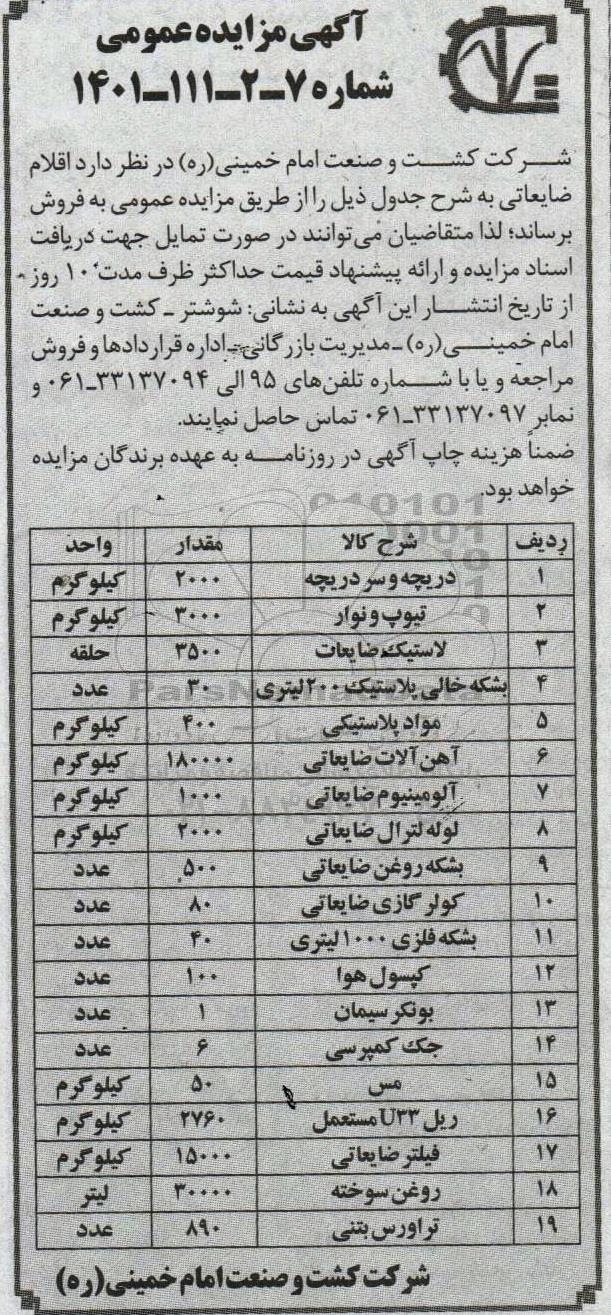 آگهی مزایده عمومی
شماره ۷ـ۲ـ۱۱۱ـ۱۴۰۱
شرکت کشت و صنعت امام خمینی(ره) در نظر دارد اقلام
ضایعاتی به شرح جدول ذیل را از طریق مزایده عمومی به فروش
برساند؛ لذا متقاضیان می‌توانند در صورت تمایل جهت دریافت
اسناد مزایده و ارائه پیشنهاد قیمت حداکثر ظرف مدت ۱۰ روز
از تاریخ انتشار این آگهی به نشانی: شوشتر ـ کشت و صنعت
امام خمینی(ره) ـ مدیریت بازرگانی ـ اداره قراردادها و فروش
مراجعه و یا با شماره تلفن‌های ۹۵ الی ۳۳۱۳۷۰۹۴ـ۰۶۱ و
نمابر ۳۳۱۳۷۰۹۷ـ۰۶۱ تماس حاصل نمایند.
ضمناً هزینه چاپ آگهی در روزنامه به عهده برندگان مزایده
خواهد بود.
ردیف شرح کالا مقدار واحد
۱ دریچه و سر دریچه ۲۰۰۰ کیلوگرم
۲ تیوپ و نوار ۳۰۰۰ کیلوگرم
۳ لاستیک ضایعات ۳۵۰۰ حلقه
۴ بشکه خالی پلاستیک ۲۰۰ لیتری ۳۰ عدد
۵ مواد پلاستیکی ۴۰۰ کیلوگرم
۶ آهن آلات ضایعاتی ۱۸۰۰۰۰ کیلوگرم
۷ آلومینیوم ضایعاتی ۱۰۰۰ کیلوگرم
۸ لوله لترال ضایعاتی ۲۰۰۰ کیلوگرم
۹ بشکه روغن ضایعاتی ۵۰۰ عدد
۱۰ کولر گازی ضایعاتی ۸۰ عدد
۱۱ بشکه فلزی ۱۰۰۰ لیتری ۴۰ عدد
۱۲ کپسول هوا ۱۰۰ عدد
۱۳ بونکر سیمان ۱ عدد
۱۴ جک کمپرسی ۶ عدد
۱۵ مس ۵۰ کیلوگرم
۱۶ ریل U۳۳ مستعمل ۲۷۶۰ کیلوگرم
۱۷ فیلتر ضایعاتی ۱۵۰۰۰ کیلوگرم
۱۸ روغن سوخته ۳۰۰۰۰ لیتر
۱۹ تراورس بتنی ۸۹۰ عدد
شرکت کشت و صنعت امام خمینی (ره)